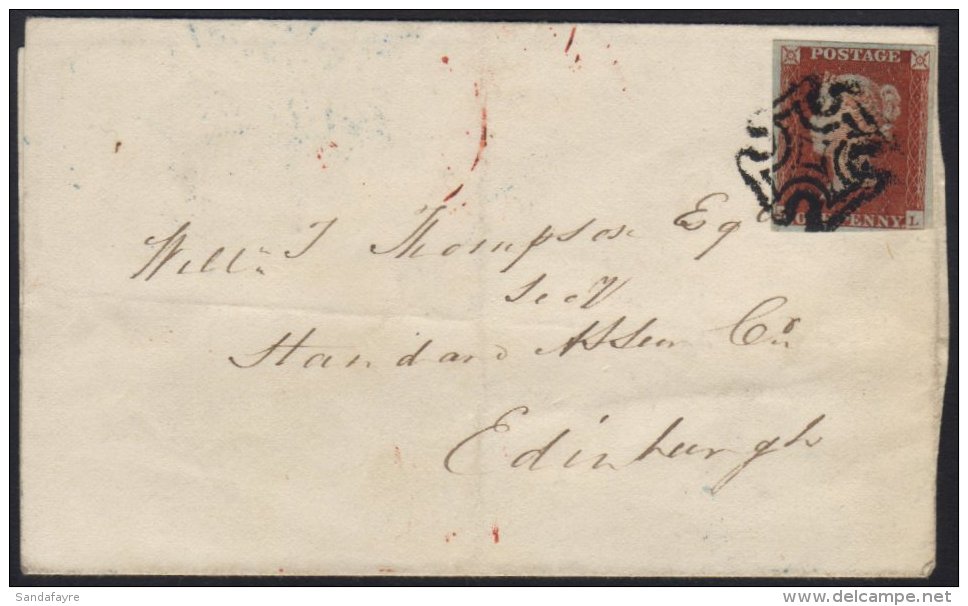 POSTAGE
PENNY L
Willm J Thompson Esqr
Secy
Standard Assce Co
Edinburgh
Sandafayre
delcampe.net